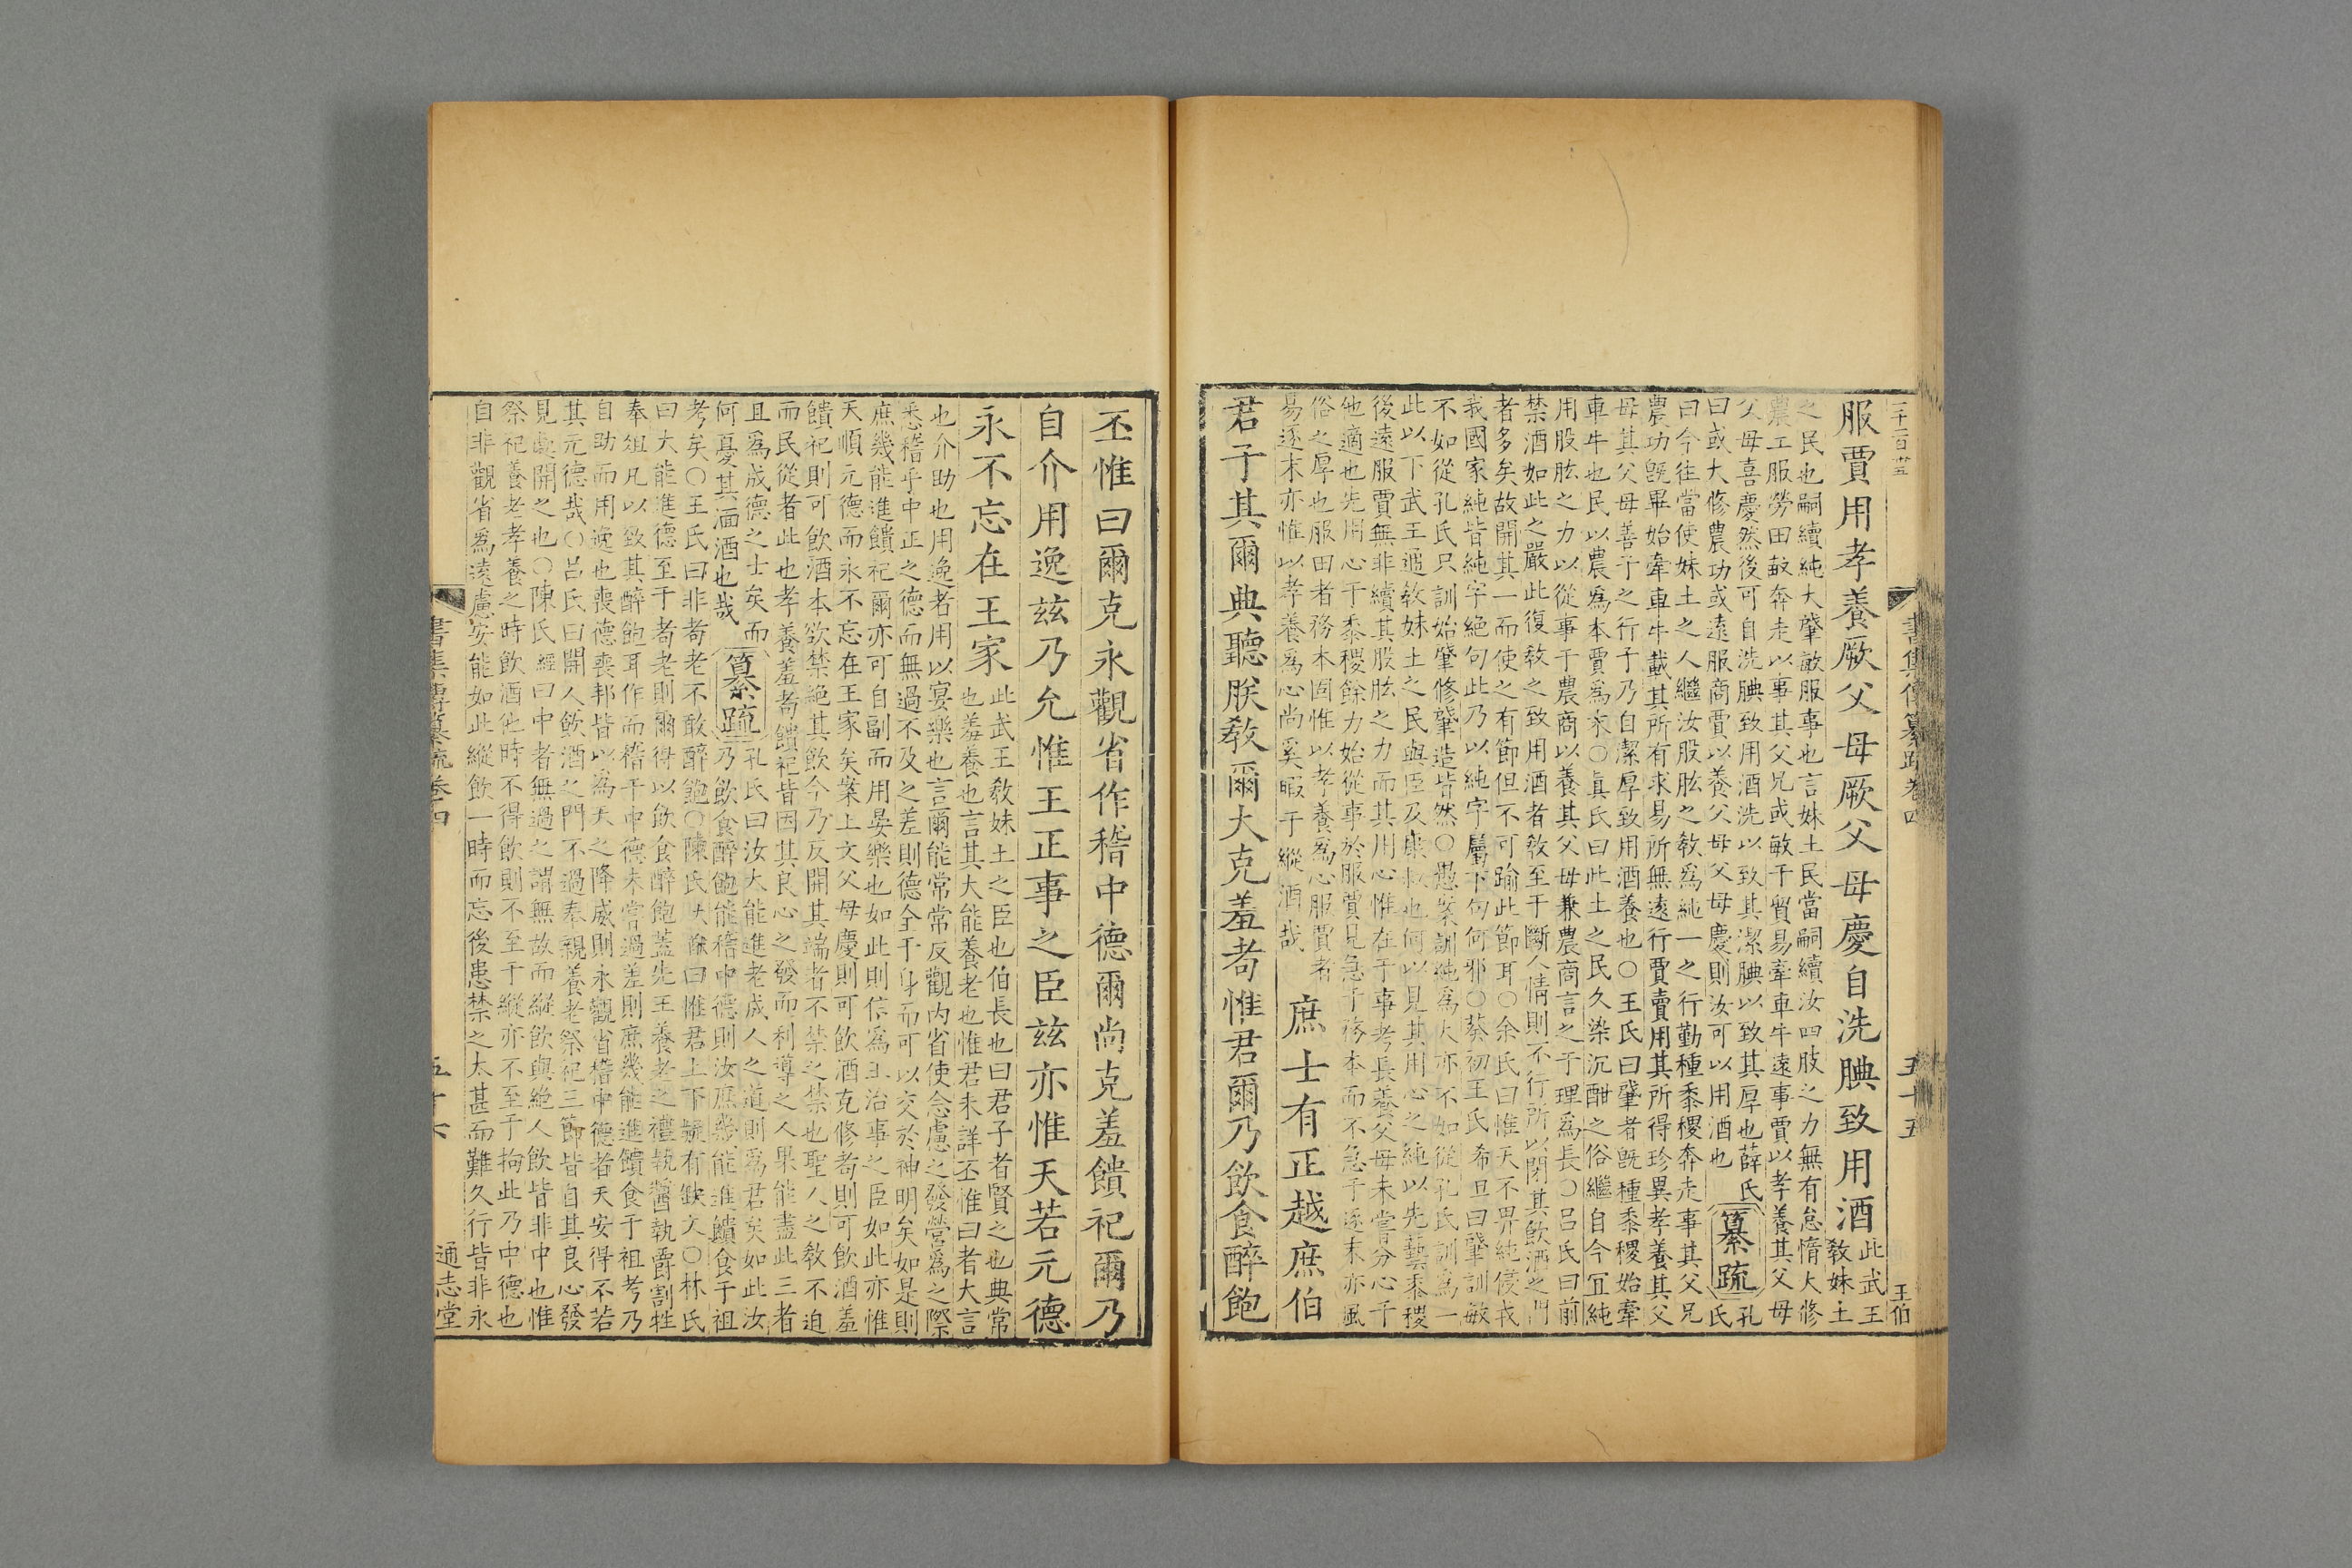 服賈用孝養厥父母厥父母慶自洗腆致用酒此武王
敎妹土
之民也嗣續純大肇敏服事也言妹土民當嗣續汝四肢之力無有怠惰大修
農工服勞田畝奔走以事其父兄或敏于貿易牽車牛遠事賈以孝養其父母
父母喜慶然後可自洗腆致用酒洗以致其潔腆以致其厚也薛氏
曰或大修農功或遠服商賈以養父母父母慶則汝可以用酒也
纂疏
孔
氏
曰今往當使妹土之人繼汝股肱之敎爲純一之行勤種黍稷奔走事其父兄
農功旣畢始牽車牛載其所有求易所無遠行賈賣用其所得珍異孝養其父
母其父母善子之行子乃自潔厚致用酒養也○王氏曰肇者旣種黍稷始牽
車牛也民以農爲本賈爲末○眞氏曰此土之民久染沉酣之俗繼自今宜純
用股肱之力以從事于農商以養其父母兼農商言之于理爲長○呂氏曰前
禁酒如此之嚴此復敎之致用酒者敎至于斷人情則不行所以閉其飲酒之門
者多矣故開其一而使之有節但不可踰此節耳○余氏曰惟天不畀純侵戎
我國家純皆純字絕句此乃以純字屬下句何邪○蔡初王氏希旦曰肇訓敏
不如從孔氏只訓始肇修肇造皆然○愚案訓純爲大亦不如從孔氏訓爲一
此以下武王通敎妹土之民與臣及康叔也何以見其用心之純以先藝黍稷
後遠服賈無非續其股肱之力而其用心惟在于事考長養父母未嘗分心于
他適也先用心于黍稷餘力始從事於服賈見急于務本而不急于逐末亦風
俗之厚也服田者務本固惟以孝養爲心服賈者
易逐末亦惟以孝養爲心尚奚暇于縱酒哉
庶士有正越庶伯
君子其爾典聽朕敎爾大克羞耇惟君爾乃飲食醉飽
書集傳纂疏卷四
五十五
王伯
丕惟曰爾克永觀省作稽中德爾尚克羞饋祀爾乃
自介用逸兹乃允惟王正事之臣兹亦惟天若元德
永不忘在王家
此武王敎妹土之臣也伯長也曰君子者賢之也典常
也羞養也言其大能養老也惟君未詳丕惟曰者大言
也介助也用逸者用以宴樂也言爾能常常反觀內省使念慮之發營爲之際
悉稽乎中正之德而無過不及之差則德全于身而可以交於神明矣如是則
庶幾能進饋祀爾亦可自副而用宴樂也如此則信爲王治事之臣如此亦惟
天順元德而永不忘在王家矣案上文父母慶則可飲酒克修耇則可飲酒羞
饋祀則可飲酒本欲禁絕其飲今乃反開其端者不禁之禁也聖人之敎不迫
而民從者此也孝養羞耇饋祀皆因其良心之發而利導之人果能盡此三者
且爲成德之士矣而
何憂其湎酒也哉
纂疏
孔氏曰汝大能進老成人之道則爲君矣如此汝
乃飲食醉飽能稽中德則汝庶幾能進饋食于祖
考矣○王氏曰非耇老不敢醉飽○陳氏大猷曰惟君上下疑有缺文○林氏
曰大能進德至于耇老則爾得以飲食醉飽蓋先王養老之禮執醬執爵割牲
奉俎凡以致其醉飽耳作而稽于中德未嘗過差則庶幾能進饋食于祖考乃
自助而用逸也喪德喪邦皆以爲天之降威則永觀省稽中德者天安得不若
其元德哉○呂氏曰開人飲酒之門不過奉親養老祭祀三節皆自其良心發
見處開之也○陳氏經曰中者無過之謂無故而縱飲與絕人飲皆非中也惟
祭祀養老孝養之時飲酒他時不得飲則不至于縱亦不至于拘此乃中德也
自非觀省爲遠慮安能如此縱飲一時而忘後患禁之太甚而難久行皆非永
書集傳纂疏卷四
五十六
通志堂